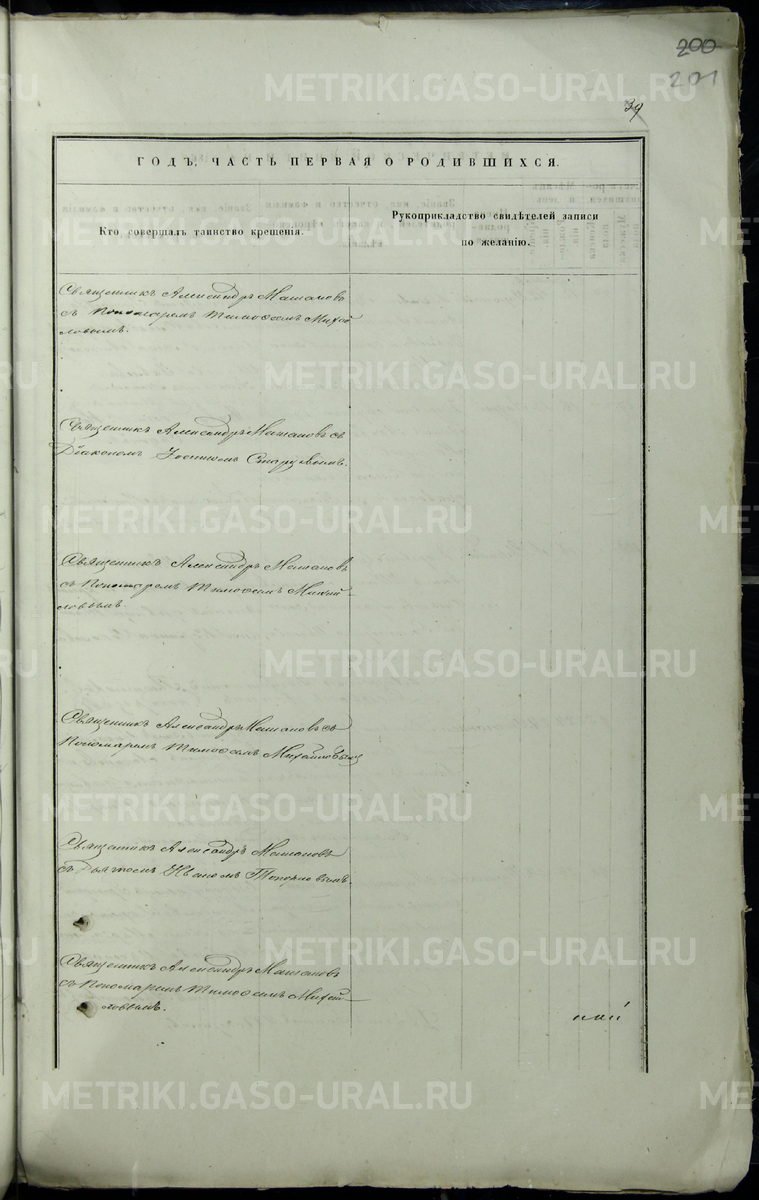 200
201
39
ГОДЪ, ЧАСТЬ ПЕРВАЯ О РОДИВШИХСЯ.
Кто совершалъ таинство крещенія.
Рукоприкладство свидѣтелей записи
по желанію.
Священникъ Александръ
съ Пономаремъ Тимофеемъ Михай
ловымъ.
Священникъ Александръ съ
Діакономъ
Священникъ Александръ
съ Пономаремъ Тимофеемъ Михай-
ловымъ.
Священникъ Александръ съ
Пономаремъ Тимофеемъ Михайловымъ
Священникъ Александръ
съ Дьячкомъ Иваномъ
Священникъ Александръ
съ Пономаремъ Тимофеемъ Михай-
ловымъ.
METRIKI.GASO-URAL.RU